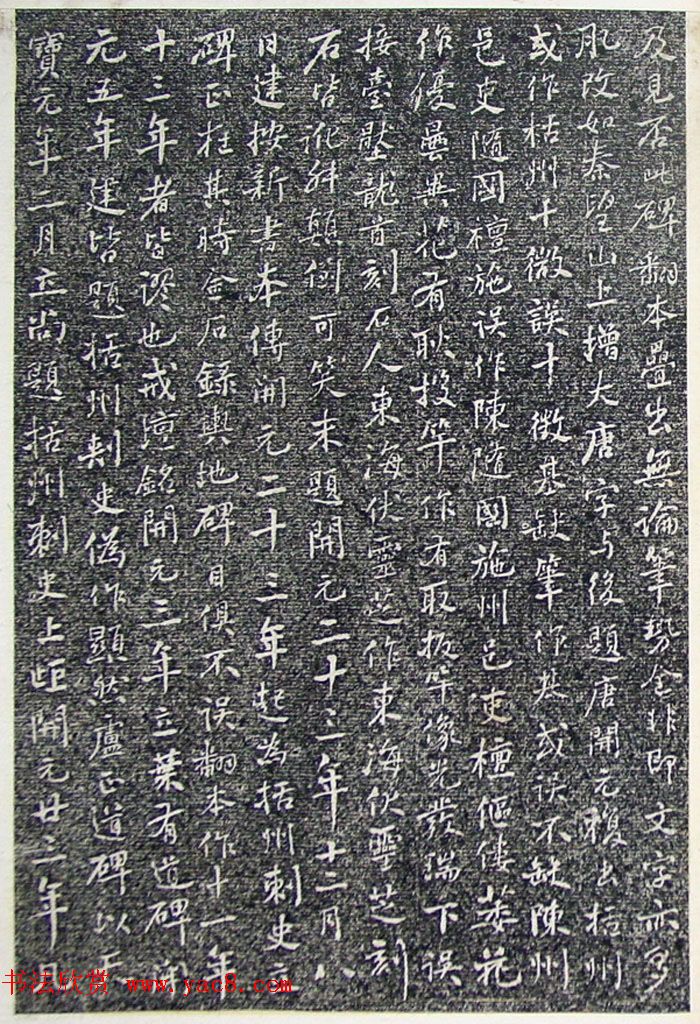 及見否此碑翻本疊出無論筆勢全非即文字亦多
訛改如秦望山上增大唐字与後題唐開元複出括州
或作枯州十微誤十徵基缺筆作其或誤不缺陳州
邑吏隨國檀施誤作陳隨國施州邑吏檀傴僂萎花
作優曇異花有耿投竿作有取扳竿像光發瑞下誤
接臺壓龍首刻石人東海伏靈芝作東海伏靈芝刻
石皆訛舛顛倒可笑末題開元二十三年十二月八
日建按新書本傳開元二十三年起為括州刺史立
碑正在其時金石錄輿地碑目俱不誤翻本作十一年
十三年者皆謬也戒壇銘開元三年立葉有道碑開
元五年建皆題括州刺史偽作顯然盧正道碑以天
寶元年二月立尚題括州刺史上距開元廿三年
书法欣赏 www.yac8.com